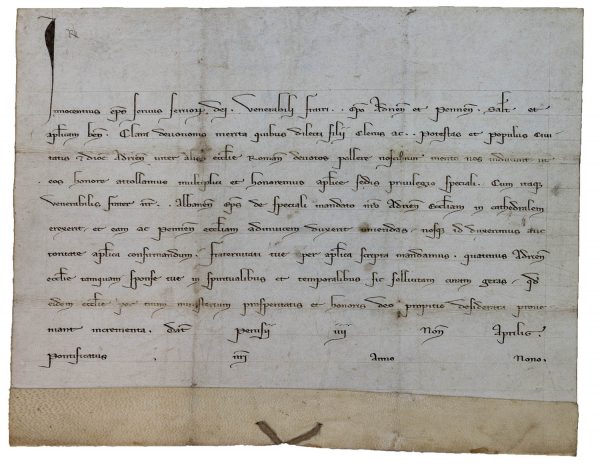 Innocentius ep̄s servus servoꝝ dei. Venerabili fratri . . ep̄o Adrien̄ et Pennen̄. Salt̄. et
ap̄licam ben̄. Clara devotionis merita quibus dilecti filii Clerus ac . . Potestas et populus Civi
tatis et dioc̄ Adrien̄ inter alios eccl̄ie Roman̄ devotos pollere noscuntur. merito nos inducunt ut
eos honore attollamus multiplici et honoremus ap̄lice sedis privilegio speciali. Cum itaq;
venerabilis frater nr̄ . . Albanen̄ ep̄s de speciali mandato nr̄o Adrien̄ Eccl̄iam in cathedralem
erexerit et eam ac Pennen̄ eccl̄iam adinvicem duxerit uniendas. nosq; id duxerimus auc
toritate ap̄lica confirmandum. fraternitati tue per ap̄lica scripta mandamus. quatinus Adrien̄
eccl̄ie tanquam sponse tue in spiritualibus et temporalibus sic sollicitam curam geras. qd̄
eidem eccl̄ie per tuum ministerium prosperitatis et honoris deo propitio desiderata prove
niant incrementa. Dat̄ Perusii iiii Non̄ Aprilis.
Pontificatus . nr̄i Anno Nono.